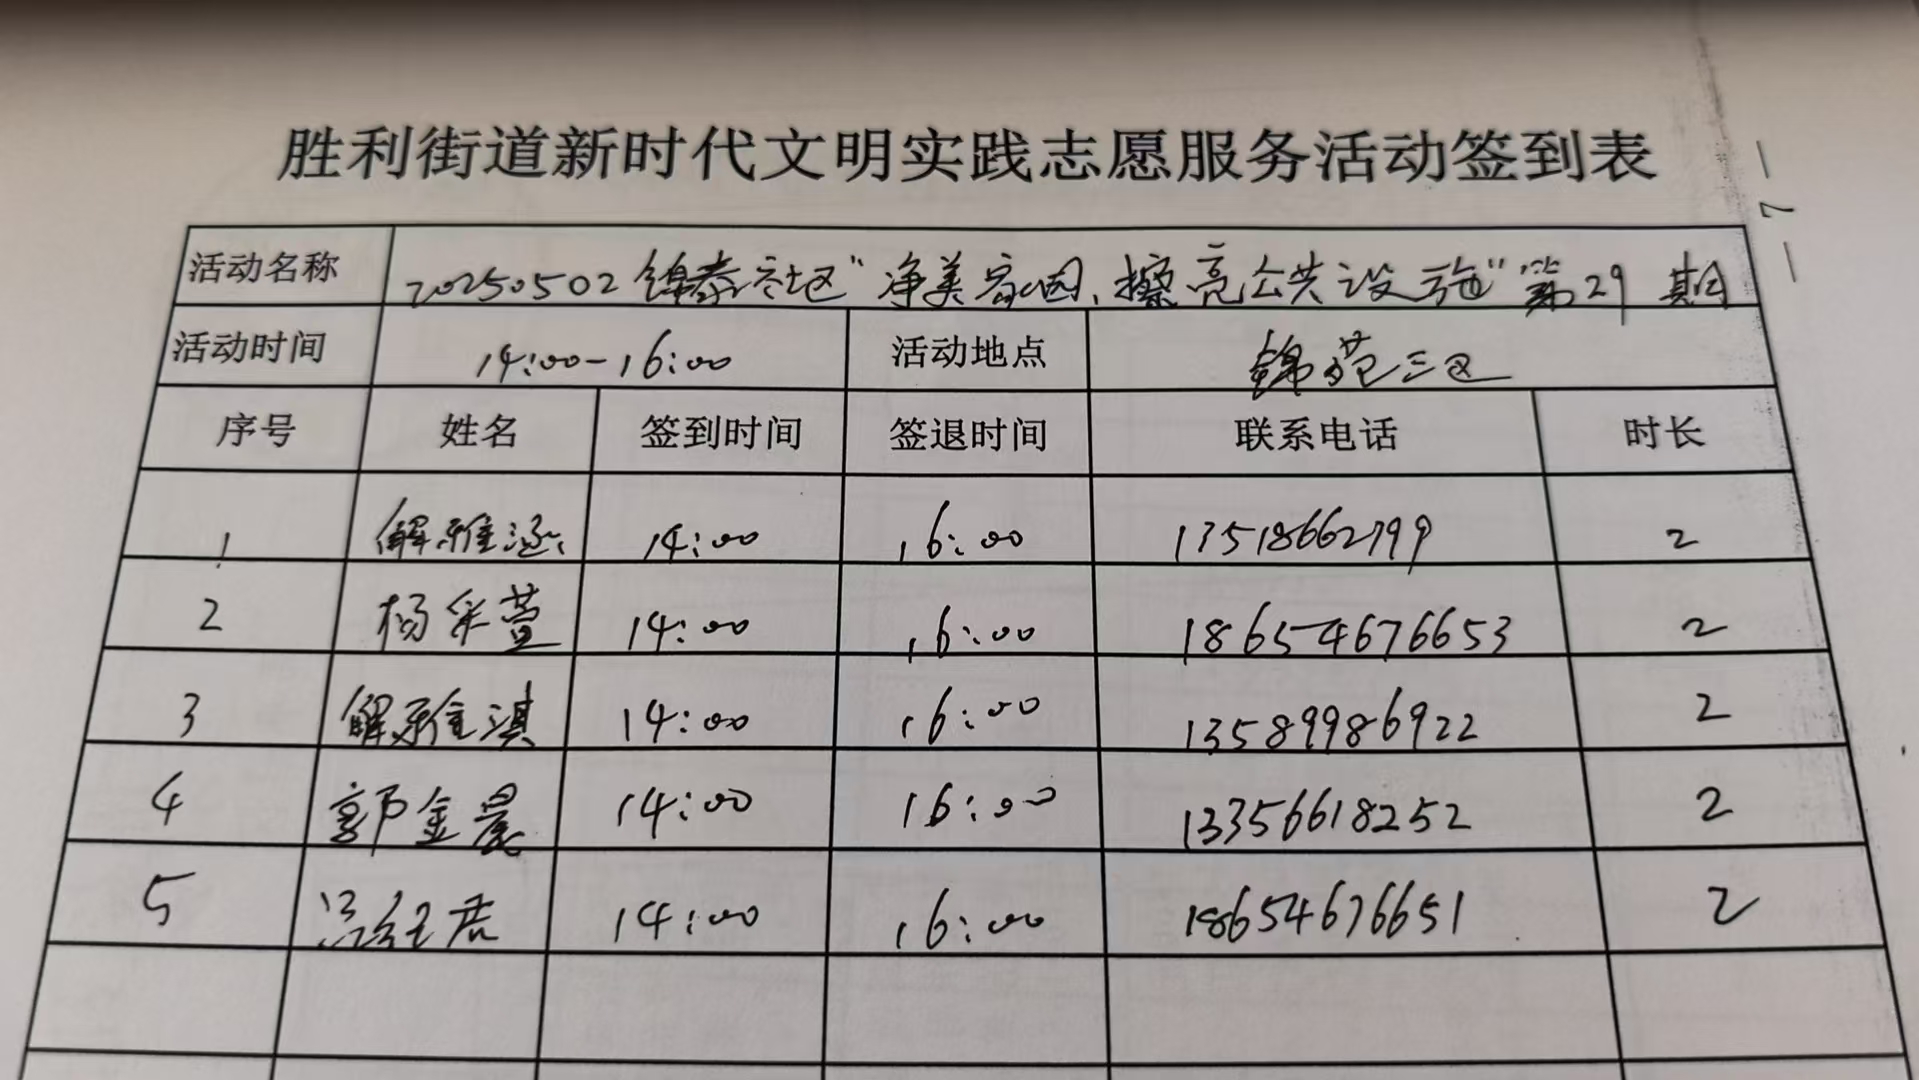 胜利街道新时代文明实践志愿服务活动签到表
活动名称 20250502锦泰社区"净美家园、擦亮公共设施"第29期
活动时间 14:00-16:00 活动地点 锦苑三区
序号 姓名 签到时间 签退时间 联系电话 时长
1 解雅涵 14:00 16:00 13518662799 2
2 杨采萱 14:00 16:00 18654676653 2
3 解雅淇 14:00 16:00 13589986922 2
4 郭金晨 14:00 16:00 13356618252 2
5 14:00 16:00 18654676651 2
— 7 —